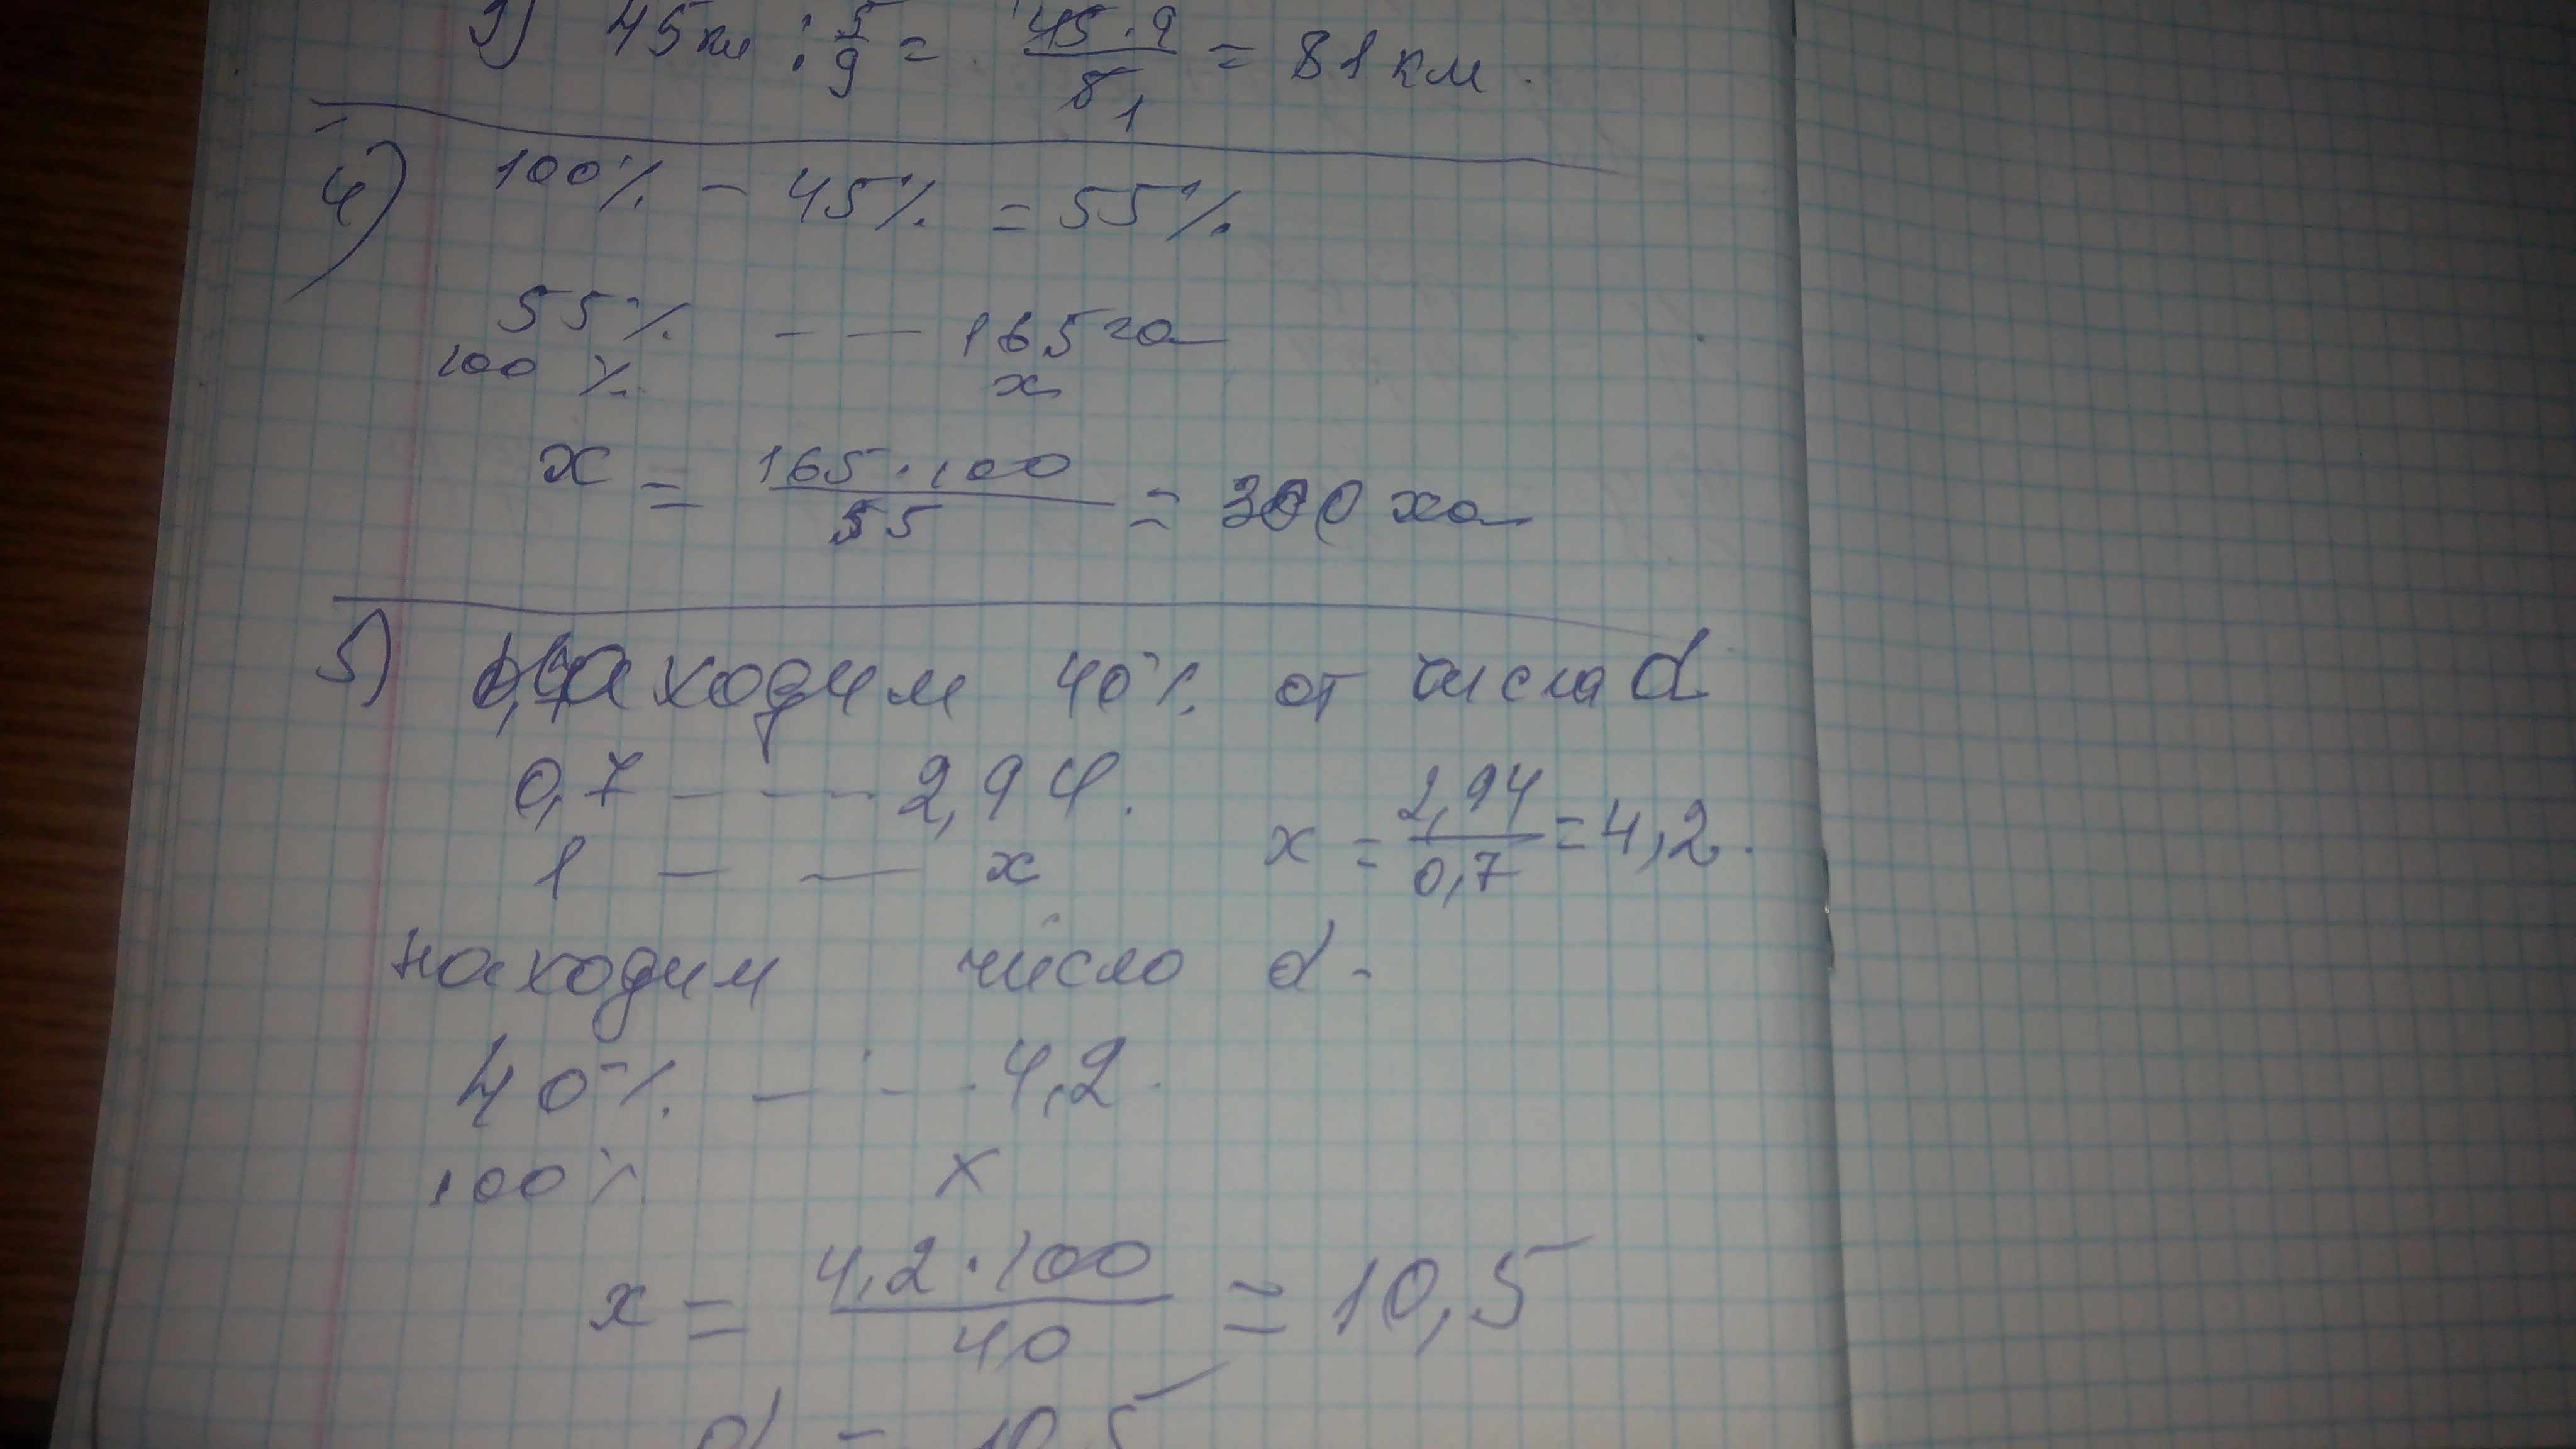 3) 45км : 5/9 = 45·9/5 1 = 81 км.
4) 100% - 45% = 55%
55% - — 165 га
100 % x
x = 165·100/55 = 300 ха
5) Находим 40% от числа d
0,7 - - - 2,94.
1 — — x x = 2,94/0,7 = 4,2.
находим число d -
40% — - - 4,2
100% x
x = 4,2·100/40 = 10,5
d = 10,5